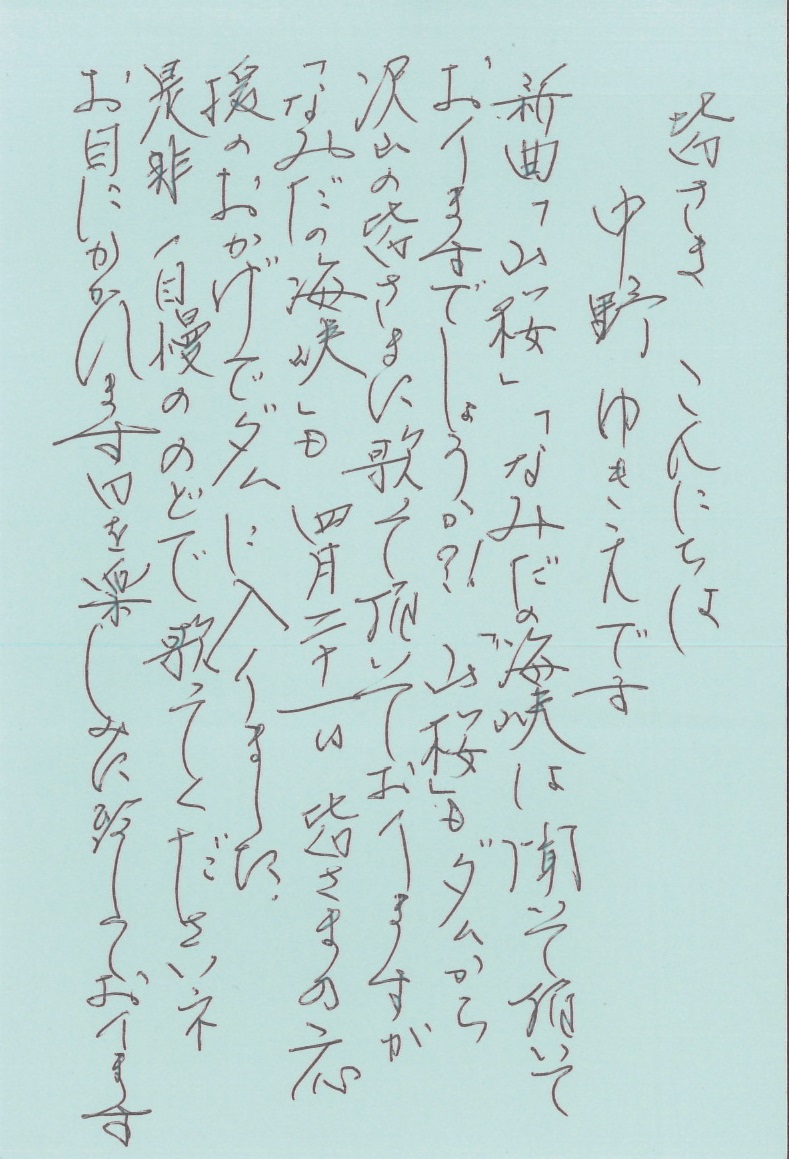 皆さま こんにちは
中野 ゆきえです
新曲「山桜」「なみだの海峡は 聞いて頂いて
おりますでしょうか?! 「山桜」も ダムから
沢山の皆さまに歌って頂いておりますが
「なみだの海峡」も 四月二十一日 皆さまの応
援のおかげでダムに入りました
是非 自慢ののどで歌ってくださいネ
お目にかかれます日を楽しみに致しております